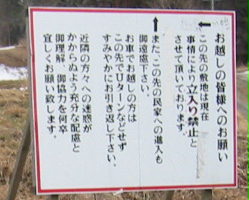 お越しの皆様へのお願い
←この先の敷地は現在
事情により立入り禁止と
させて頂いております。
↑また、この先の民家への進入も
御遠慮下さい。
お車でお越しの方は
この先でUターンなどせず
すみやかにお引き返し下さい。
近隣の方々への迷惑が
かからぬよう充分な配慮と
御理解、御協力を何卒
宜しくお願い致します。